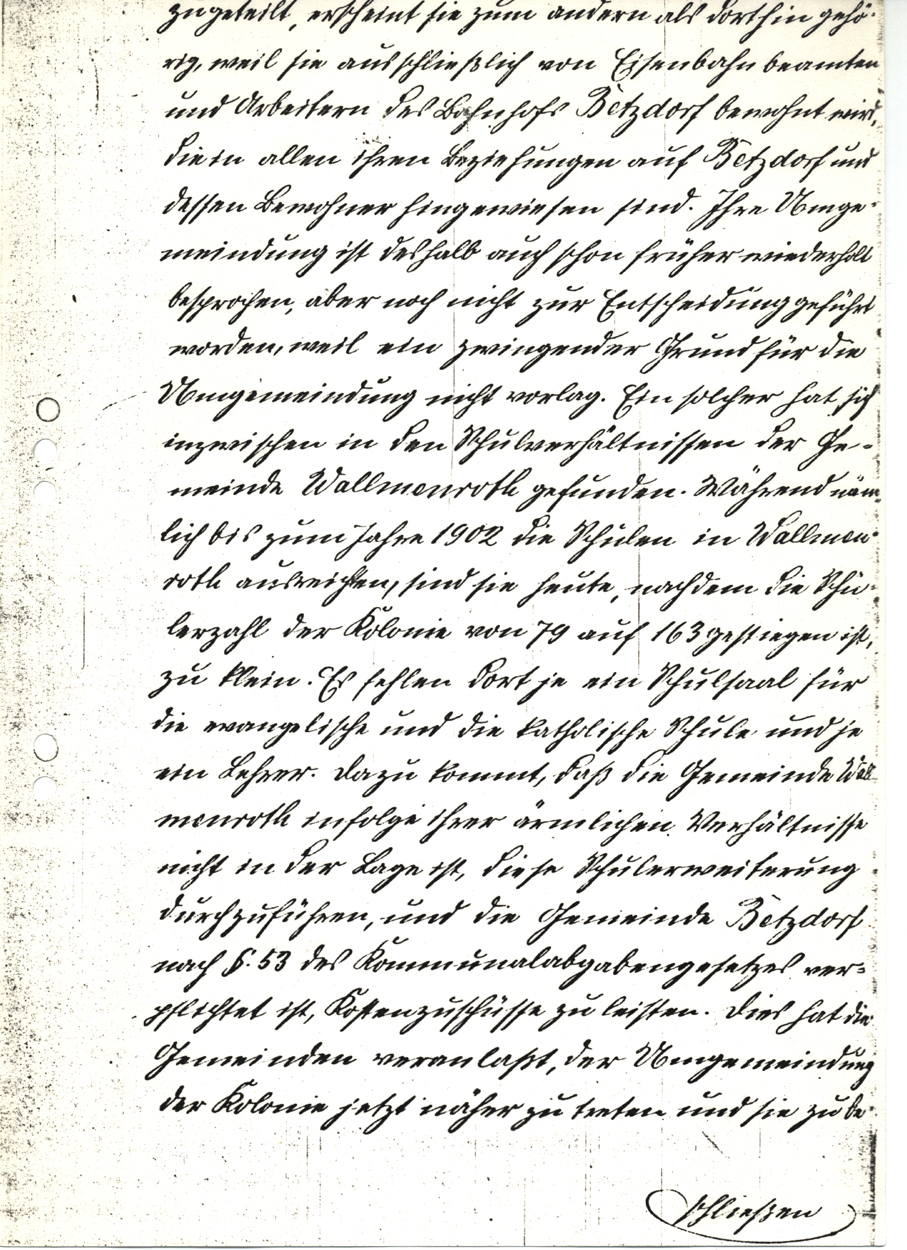 zugeteilt, erscheint sie zum andern als dorthin gehö-
rig, weil sie ausschließlich von Eisenbahnbeamten
und Arbeitern des Bahnhofs Betzdorf bewohnt wird,
die in allen ihren Beziehungen auf Betzdorf und
dessen Bewohner hingewiesen sind. Ihre Umge-
meindung ist deshalb auch schon früher wiederholt
besprochen, aber noch nicht zur Entscheidung geführt
worden, weil ein zwingender Grund für die
Umgemeindung nicht vorlag. Ein solcher hat sich
inzwischen in den Schulverhältnissen der Ge-
meinde Wallmenroth gefunden. Während näm-
lich bis zum Jahre 1902 die Schulen in Wallmen-
roth ausreichten, sind sie heute, nachdem die Schü-
lerzahl der Kolonie von 79 auf 163 gestiegen ist,
zu klein. Es fehlen dort je ein Schulsaal für
die evangelische und die katholische Schule und je
ein Lehrer. Dazu kommt, daß die Gemeinde Wall-
menroth infolge ihrer ärmlichen Verhältnisse
nicht in der Lage ist, diese Schulerweiterung
durchzuführen, und die Gemeinde Betzdorf
nach §. 53 des Kommunalabgabengesetzes ver-
pflichtet ist, Kostenzuschüsse zu leisten. Dies hat die
Gemeinden veranlaßt, der Umgemeindung
der Kolonie jetzt näher zu treten und sie zu be-
schließen